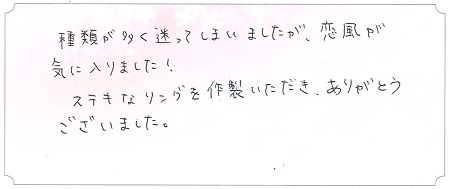 種類が多く迷ってしまいましたが、恋風が
気に入りました！
ステキなリングを作製いただき、ありがとう
ございました。